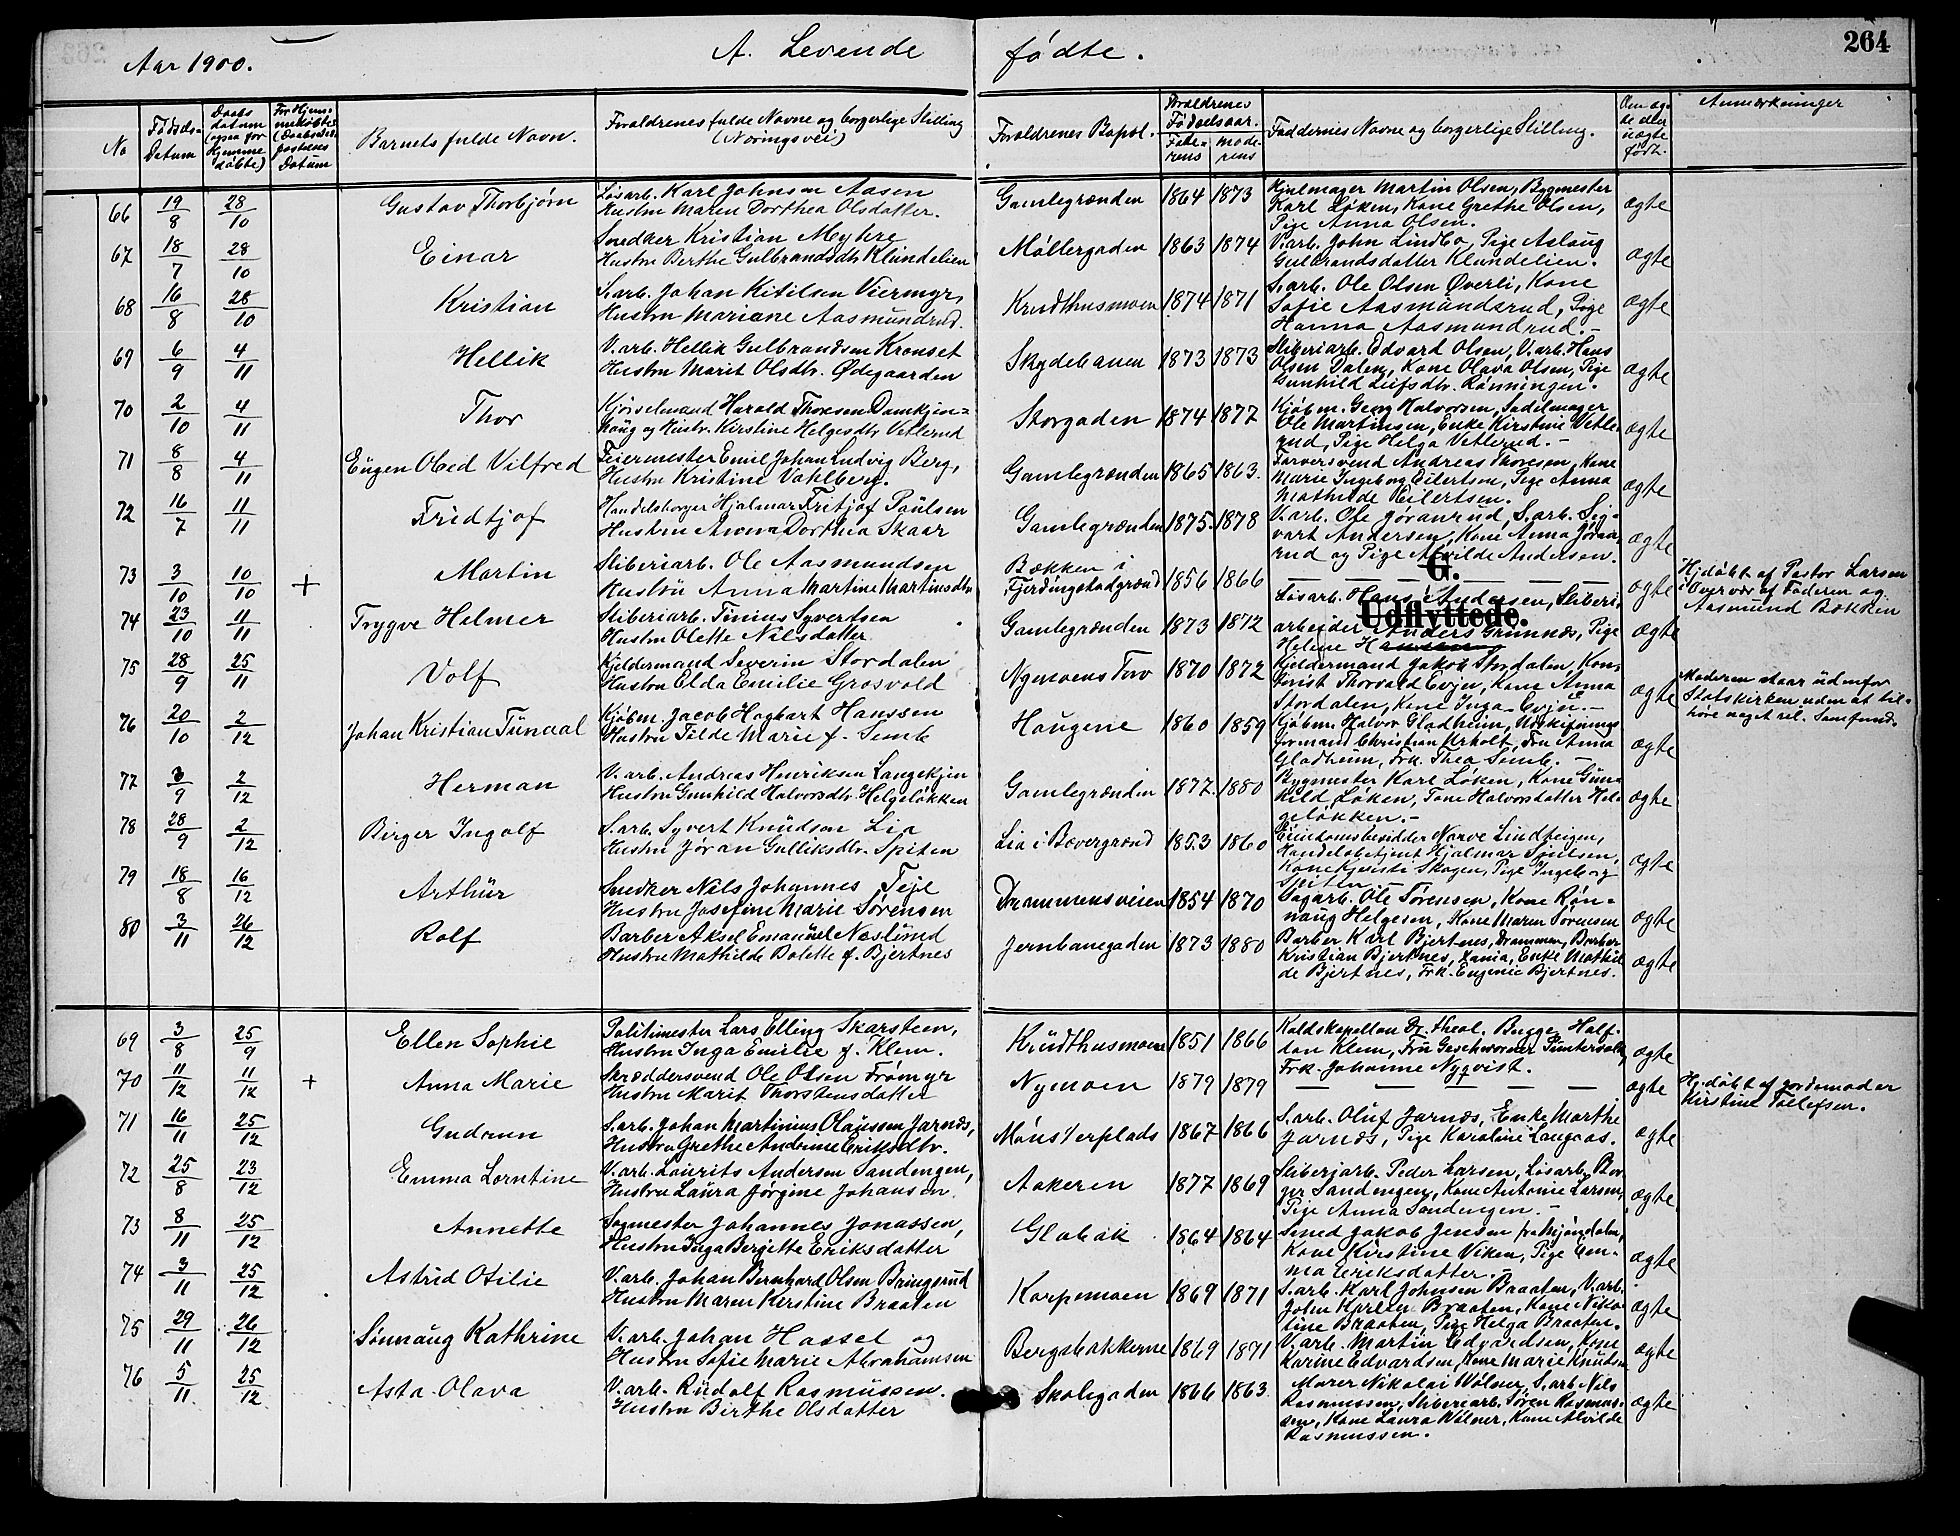 Aar 1900.
A. Levende fødte.
264
No
Fødsels-Datum
Daabsdatum (ogsaa for Hjemmedøbte)
Barnets fulde Navn.
Forældrenes fulde Navne og borgerlige Stilling (Næringsvei)
Forældrenes Bopæl.
Forældrenes Fødselsaar. Faderens Moderens
Faddernes Navne og borgerlige Stilling.
Om ægte eller uægte født.
Anmærkninger
66 19/8 28/10 Gustav Thorbjørn
Løsarb. Karl Johnsen Aasen
Hustru Maren Dorthea Olsdatter.
Gamlegrænden 1864 1873
Hjulmager Martin Olsen, Bygmester
Karl Løken, Kone Grethe Olsen,
Pige Anna Olsen.
ægte
67 18/7 28/10 Einar
Snedker Kristian Myhre
Hustru Berthe Gulbrandsdtr. Klundelien
Møllergaden 1863 1874
V.arb. John Lindbo, Pige Aslaug
Gulbrandsdatter Klundelien.
ægte
68 16/8 28/10 Kristian
S.arb. Johan Kitilsen Viermyr,
Hustru Mariane Aasmundrud.
Krudthusmoen 1874 1871
S.arb. Ole Olsen Øverli, Kone
Sofie Aasmundsrud, Pige
Hanna Aasmundrud.-
ægte
69 6/9 4/11 Hellik
V.arb. Hellik Gulbrandsen Kronset
Hustru Marit Olsdtr. Ødegaarden
Skydebanen 1873 1873
Sliberiarb. Edvard Olsen, V.arb. Hans
Olsen Dalen, Kone Olava Olsen, Pige
Gunhild Leifsdtr. Rønningen.
ægte
70 2/10 4/11 Thor
Kjørselmand Harald Thoresen Damkjen=
haug og Hustr. Kirstine Helgesdtr Vetterud
Storgaden 1874 1877
Kjøbm. Georg Halvorsen, Sadelmager
Ole Martinsen, Enke Kirstine Vette-
rud, Pige Helga Vetterud.-
ægte
71 8/8 4/11 Eugen Obed Vilfred
Feiermester Emil Johan Ludvig Berg,
Hustru Kristine Vahlberg.
Gamlegrænden 1865 1863.
Farversvend Andreas Thoresen, Kone
Marie Ingeborg Eilertsen, Pige Anna
Mathilde Eilertsen.
ægte
72 16/7 11/11 Fridtjof
Handelsborger Hjalmar Fritjof Paulsen
Hustru Anna Dorthea Skaar
Gamlegrænden 1875. 1878
V.arb. Ole Jøranrud, S.arb. Sig-
vart Andersen, Kone Anna Jøran-
rud og Pige Alvilde Andersen.
ægte
73 3/10 10/10 + Martin
Sliberiarb. Ole Aasmundsen
Hustru Anna Martine Martinsdtr.
Bækken i
Fjerdingstadgrænd 1856 1866
— — — —
ægte
Hj.døbt af Pastor Larsen
i Overvær af Faderen og
Aasmund Bækken
G.
Udflyttede.
74 23/10 11/11 Trygve Helmer
Sliberiarb. Tinius Syvertsen
Hustru Olette Nilsdatter
Gamlegrænden 1873 1872
Løsarb. Hans Andersen, Sliberi,
arbeider Anders Grimnæs, Pige
Helene Hansen
ægte
75 28/9 25/11 Volf
Kjeldermand Severin Stordalen
Hustru Elda Emilie Grosvold
Nymoens Torv 1870 1872
Kjeldermand Jakob Stordalen, Kon-
torist Thorvald Evju, Kone Anna
Stordalen, Kone Inga Evju.-
ægte
Moderen staar udenfor
Statskirken uden at til-
høre noget rel. Samfund.
76 20/10 2/12 Johan Kristian Tunaal
Kjøbm. Jacob Hagbart Hanssen
Hustru Tilde Marie f. Semb
Haugene 1860 1859
Kjøbm. Halvor Gladheim, Udskifnings
formand Christian Urholt, Fru Anna
Gladheim, Frk. Thea Semb.-
ægte
77 3/9 2/12 Herman
V.arb. Andreas Henriksen Langekjen
Hustru Gunhild Halvorsdtr. Helgeløkken
Gamlegrænden 1877. 1880
Bygmester Karl Løken, Kone Gun-
hild Løken, Tone Halvorsdatter Hel-
geløkken.-
ægte
78 28/9 2/12 Birger Ingolf
S.arb. Syvert Knudsen Lia
Hustru Jøran Gulliksdtr. Spiten
Lia i Bævergrænd 1853 1860
Eiendomsbesidder Narve Lindteigen,
Handelsbetjent Hjalmar Poulsen,
Kone Kjersti Skogen, Pige Ingeborg
Spiten
ægte
79 18/8 16/12 Arthur
Snedker Nils Johannes Teje
Hustru Josefine Marie Sørensen
Drammensveien 1854 1870
Sagarb. Ole Sørensen, Kone Røn-
naug Helgesen, Kone Maren Sørensen
ægte
80 3/11 26/12 Rolf
Barber Aksel Emanuel Næslund
Hustru Mathilde Bolette f. Bjertnes
Jernbanegaden 1873 1880
Barber Karl Bjertnes, Drammen, Barber
Kristian Bjertnes, Xania, Enke Mathil
de Bjertnes, Frk. Eugenie Bjertnes.
ægte
69 3/8 25/9 Ellen Sophie
Politimester Lars Elling Skarsteen,
Hustru Inga Emilie f. Klem.
Krudthusmoen 1851 1866
Koldskapellan Dr. theol. Bugge, Half-
dan Klem, Fru Geschworner Püntervold,
Frk. Johanne Nyqvist.
ægte
70 11/12 11/12 + Anna Marie
Skræddersvend Ole Olsen Frømyr
Hustru Marit Thorstensdatter
Nymoen 1879 1879
— — — — —
ægte
Hj.døbt af Jordemoder
Kirstine Tollefsen.
71 16/11 25/12 Gudrun
S.arb. Johan Martinius Olaussen Jarnæs,
Hustru Grethe Andrine Eriksdtr.
Mønsterplads 1867 1866
S.arb. Oluf Jarnæs, Enke Marthe
Jarnæs, Pige Karoline Langaas.
ægte
72 25/8 23/12 Emma Lorntine
V.arb. Laurits Andersen Sandengen,
Hustru Laura Jørgine Johansen.
Aakeren 1877 1869
Sliberiarb. Peder Larsen, Løsarb. Bor-
ger Sandengen, Kone Antonie Larsen,
Pige Anna Sandengen.-
ægte
73 8/11 25/12 Annette
Sagmester Johannes Jonassen,
Hustru Inga Bergitte Eriksdatter
Glabak 1864 1864
Smed Jakob Jensen fra Mjøndalen,
Kone Kirstine Viken, Pige Em-
ma Eriksdatter.-
ægte
74 3/11 25/12 Astrid Otilie
V.arb. Johan Bernhard Olsen Bringerud
Hustru Maren Kerstine Braaten
Korpemoen 1869 1871
S.arb. Karl Johnsen Braaten, V.arb.
John Karlsen Braaten, Kone Niko-
line Braaten, Pige Helga Braaten.
ægte
75 29/11 26/12 Sønnaug Kathrine
V.arb. Johan Hassel og
Hustru Sofie Marie Abrahamsen
Bergsbakkerne 1869 1871
V.arb. Martin Edvardsen, Kone
Karine Edvardsen, Kone Marie Knudsen
ægte
76 5/11 25/12 Asta Olava
V.arb. Rudolf Rasmussen.
Hustru Birthe Olsdatter
Skolegaden 1866 1863
Murer Nikolai Wølner, S.arb. Nils
Rasmussen, Sliberiarb. Søren Rasmus-
sen, Kone Laura Wølner, Kone Alvilde
Rasmussen.
ægte